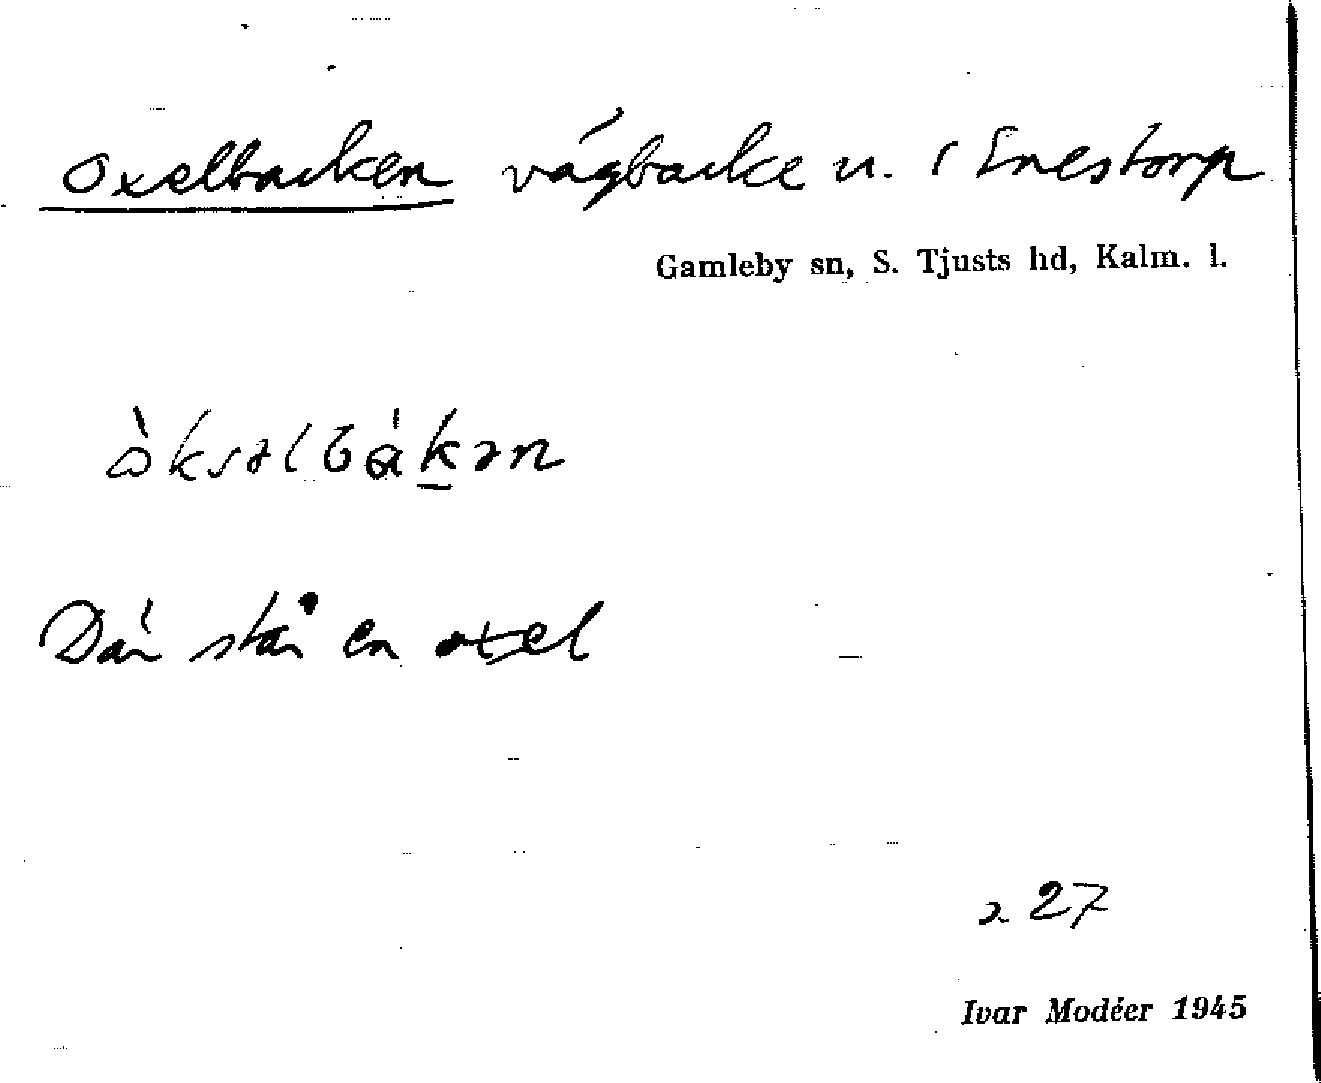 Oxelbacken vägbacke n. i Enestorp
Gamleby sn, S. Tjusts hd, Kalm. l.
òksəlbákən
Där står en oxel
27
Ivar Modéer 1945